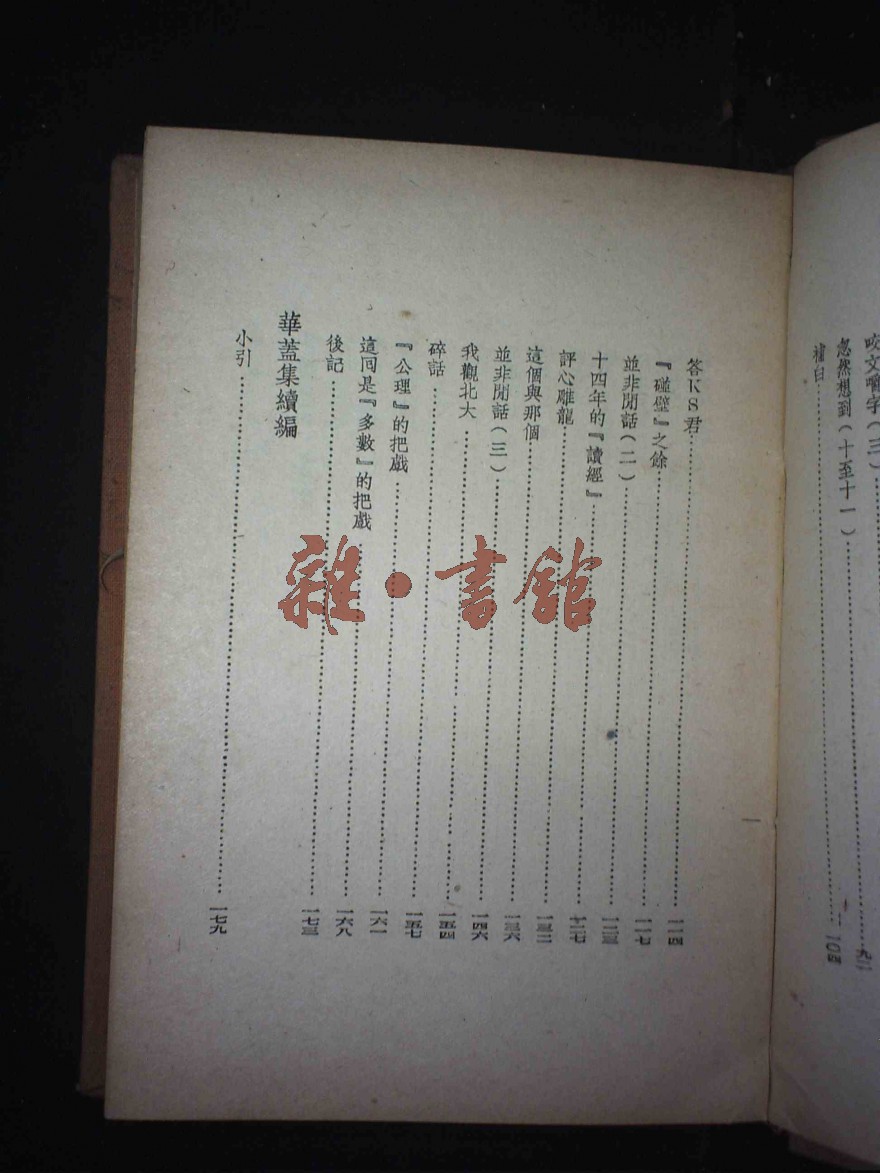 咬文嚼字(三)
忽然想到(十至十一)……九二
補白……一〇四
一
答KS君……一一四
『碰壁』之餘……一一七
並非閒話(二)……一二三
十四年的『讀經』……一二七
評心雕龍……一三二
這個與那個……一三六
並非閒話(三)……一四六
我觀北大……一五四
碎話……一五七
『公理』的把戲……一六一
這回是『多數』的把戲……一六八
後記……一七三
華蓋集續編
小引……一七九
雜·書館